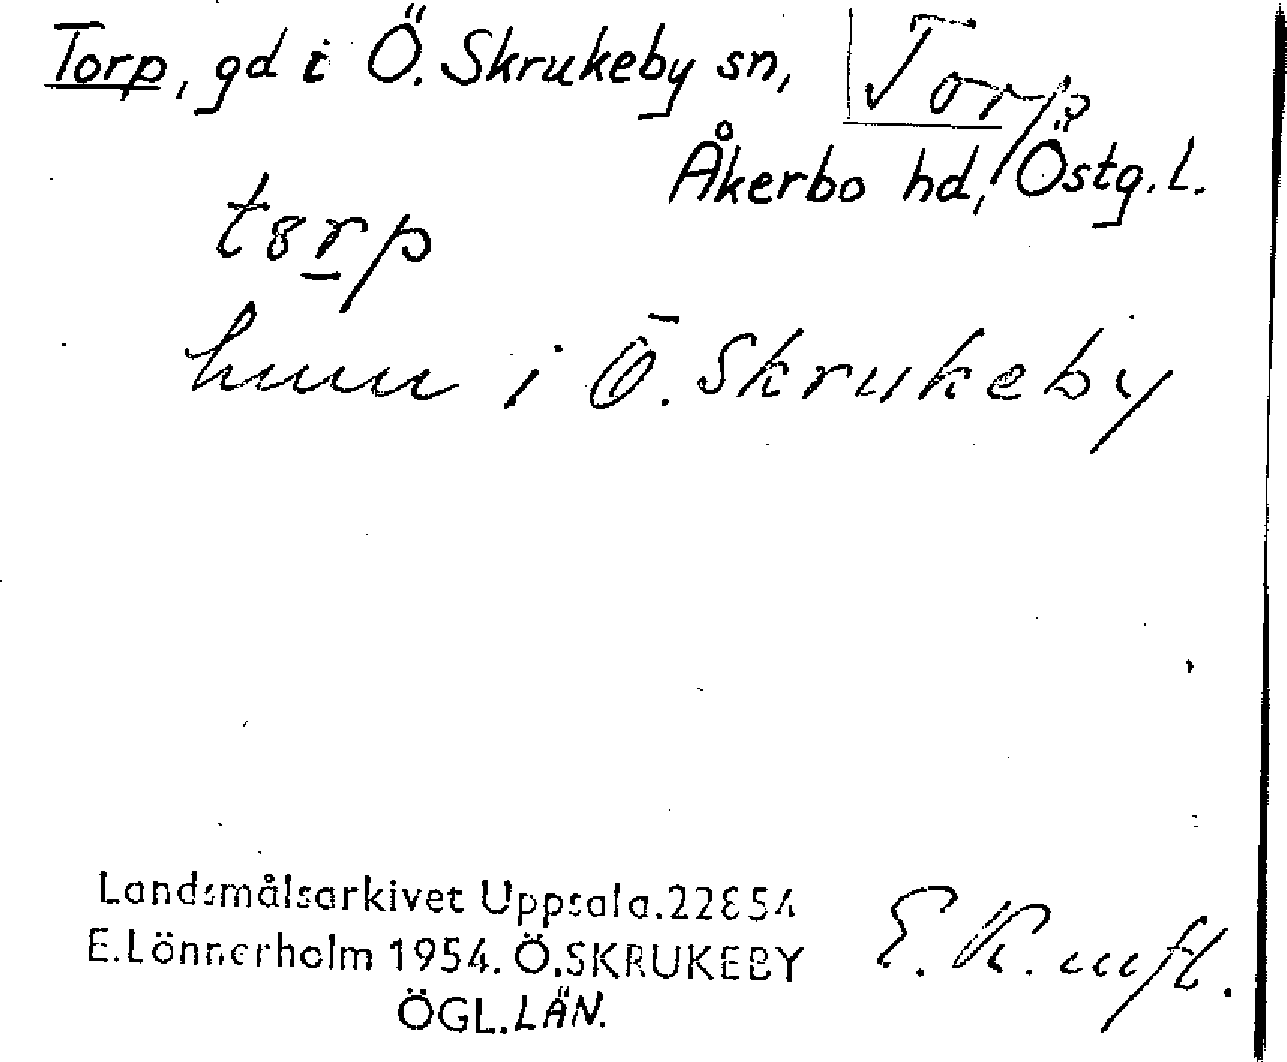 Torp, gd i Ö. Skrukeby sn,
Torp
Åkerbo hd, Östg. l.
torp
hmn i Ö. Skrukeby
Landsmålsarkivet Uppsala. 22854
E. Lönnerholm 1954. Ö. SKRUKEBY
ÖGL. LÄN.
E. K.